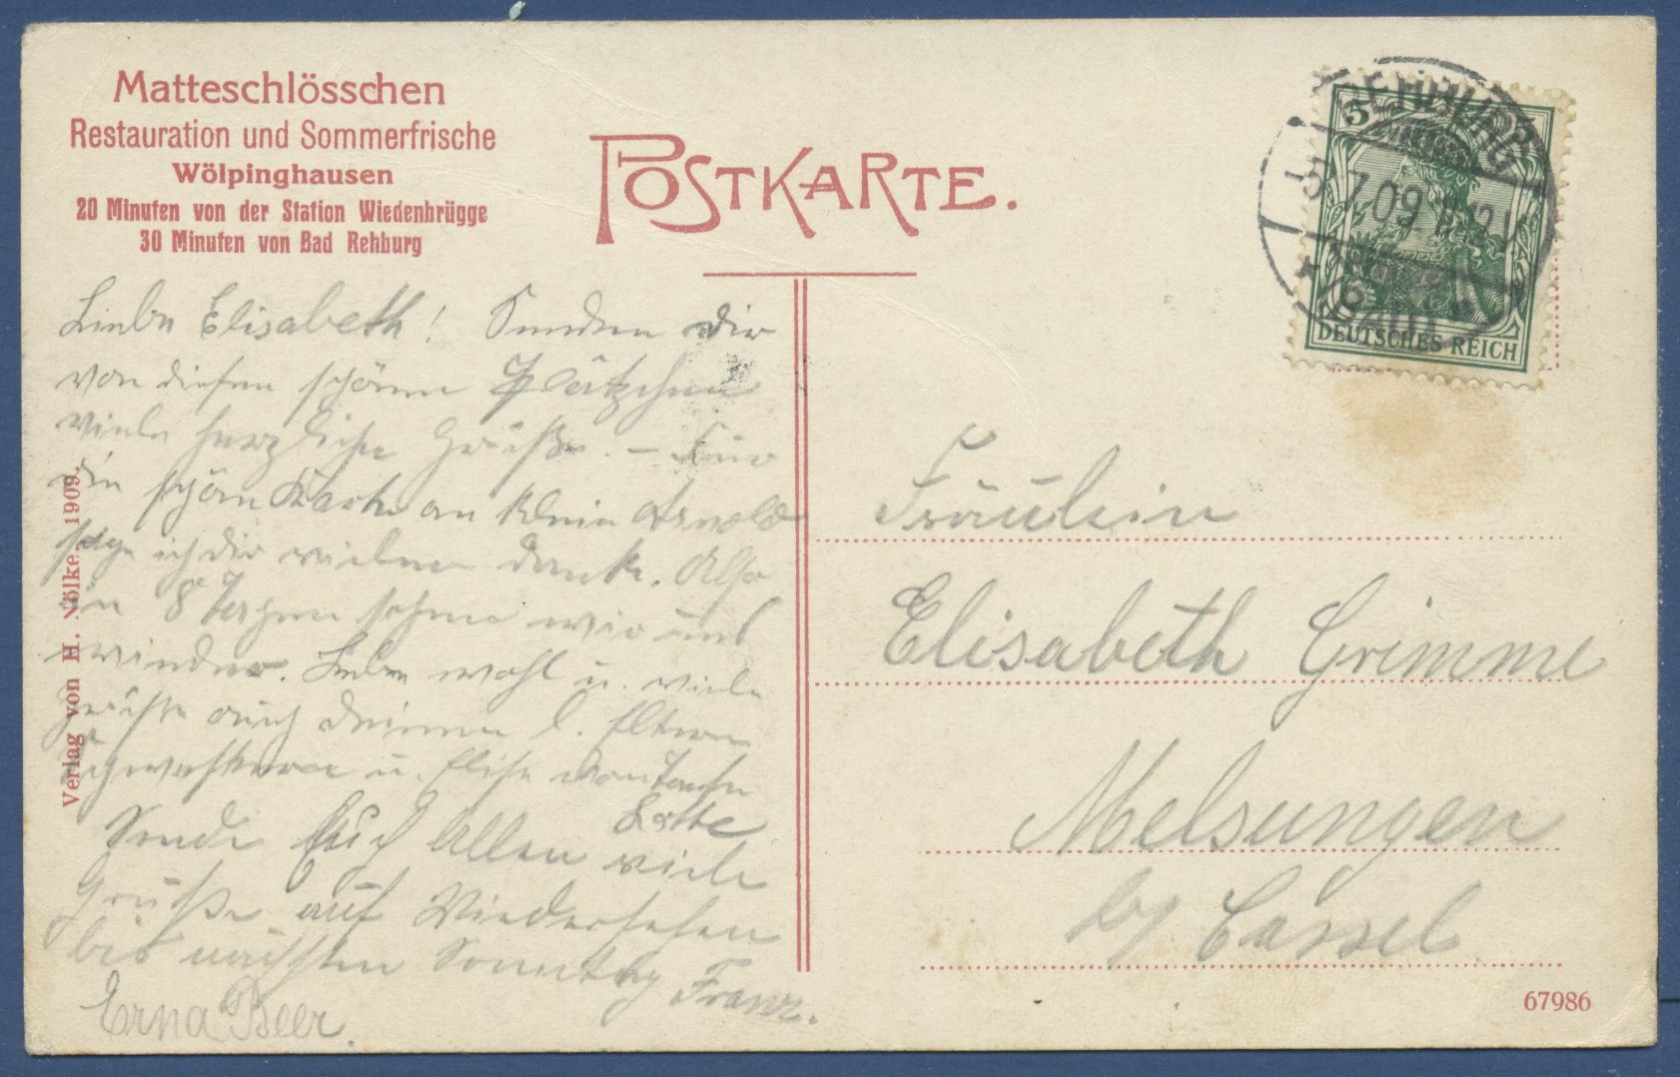 Matteschlösschen
Restauration und Sommerfrische
Wölpinghausen
20 Minuten von der Station Wiedenbrügge
30 Minuten von Bad Rehburg
POSTKARTE.
5
REHBURG
7.09
BAD
DEUTSCHES REICH
Liebe Elisabeth! Senden dir
von diesem schönen Plätzchen
viele herzliche Grüße. – Für
die schöne Karte an klein Arnold
sage ich dir vielen Dank. Also
in 8 Tagen sehen wir uns
wieder. Lebe wohl u. viele
Grüße auch Deinen l. Eltern
Geschwistern u. Elise von Tante
Lotte
Sende Euch Allen viele
Grüße auf Wiedersehen
bis nächsten Sonntag Franz.
Erna Beer.
Verlag von H. Völke, 1909.
Fräulein
Elisabeth Grimme
Melsungen
b/ Cassel
67986